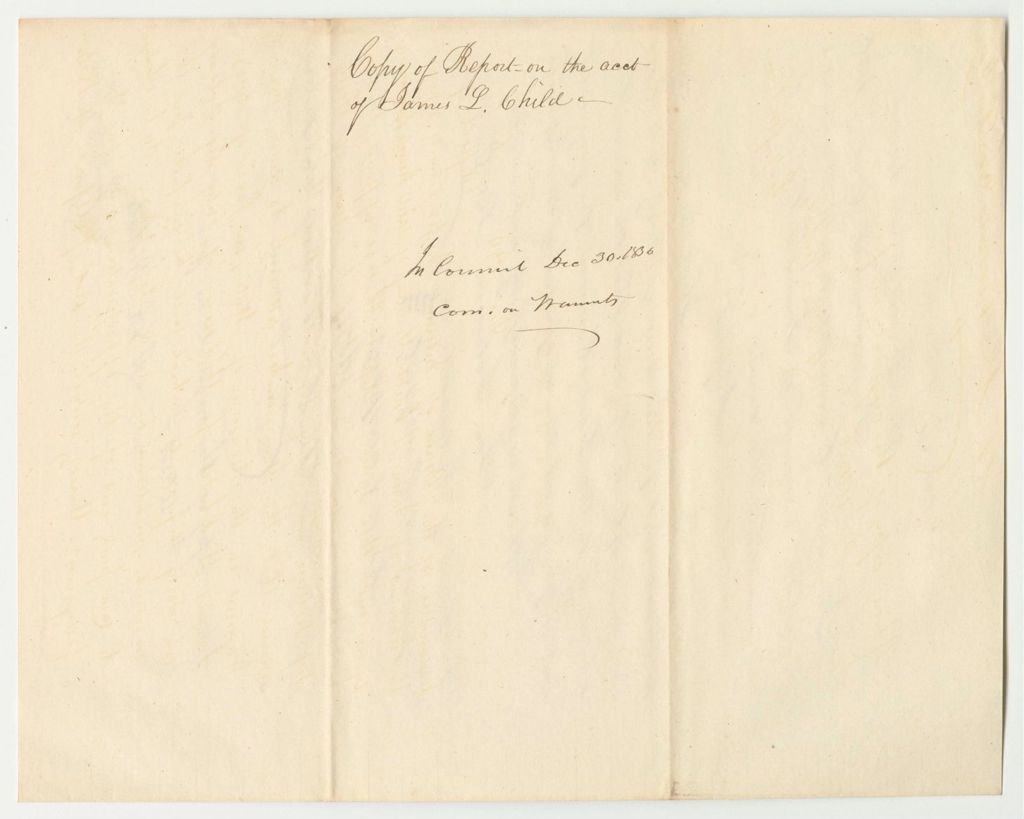 Copy of Report on the acct
of James L. Child
In Council Dec 30. 1836
Com. on Warrants